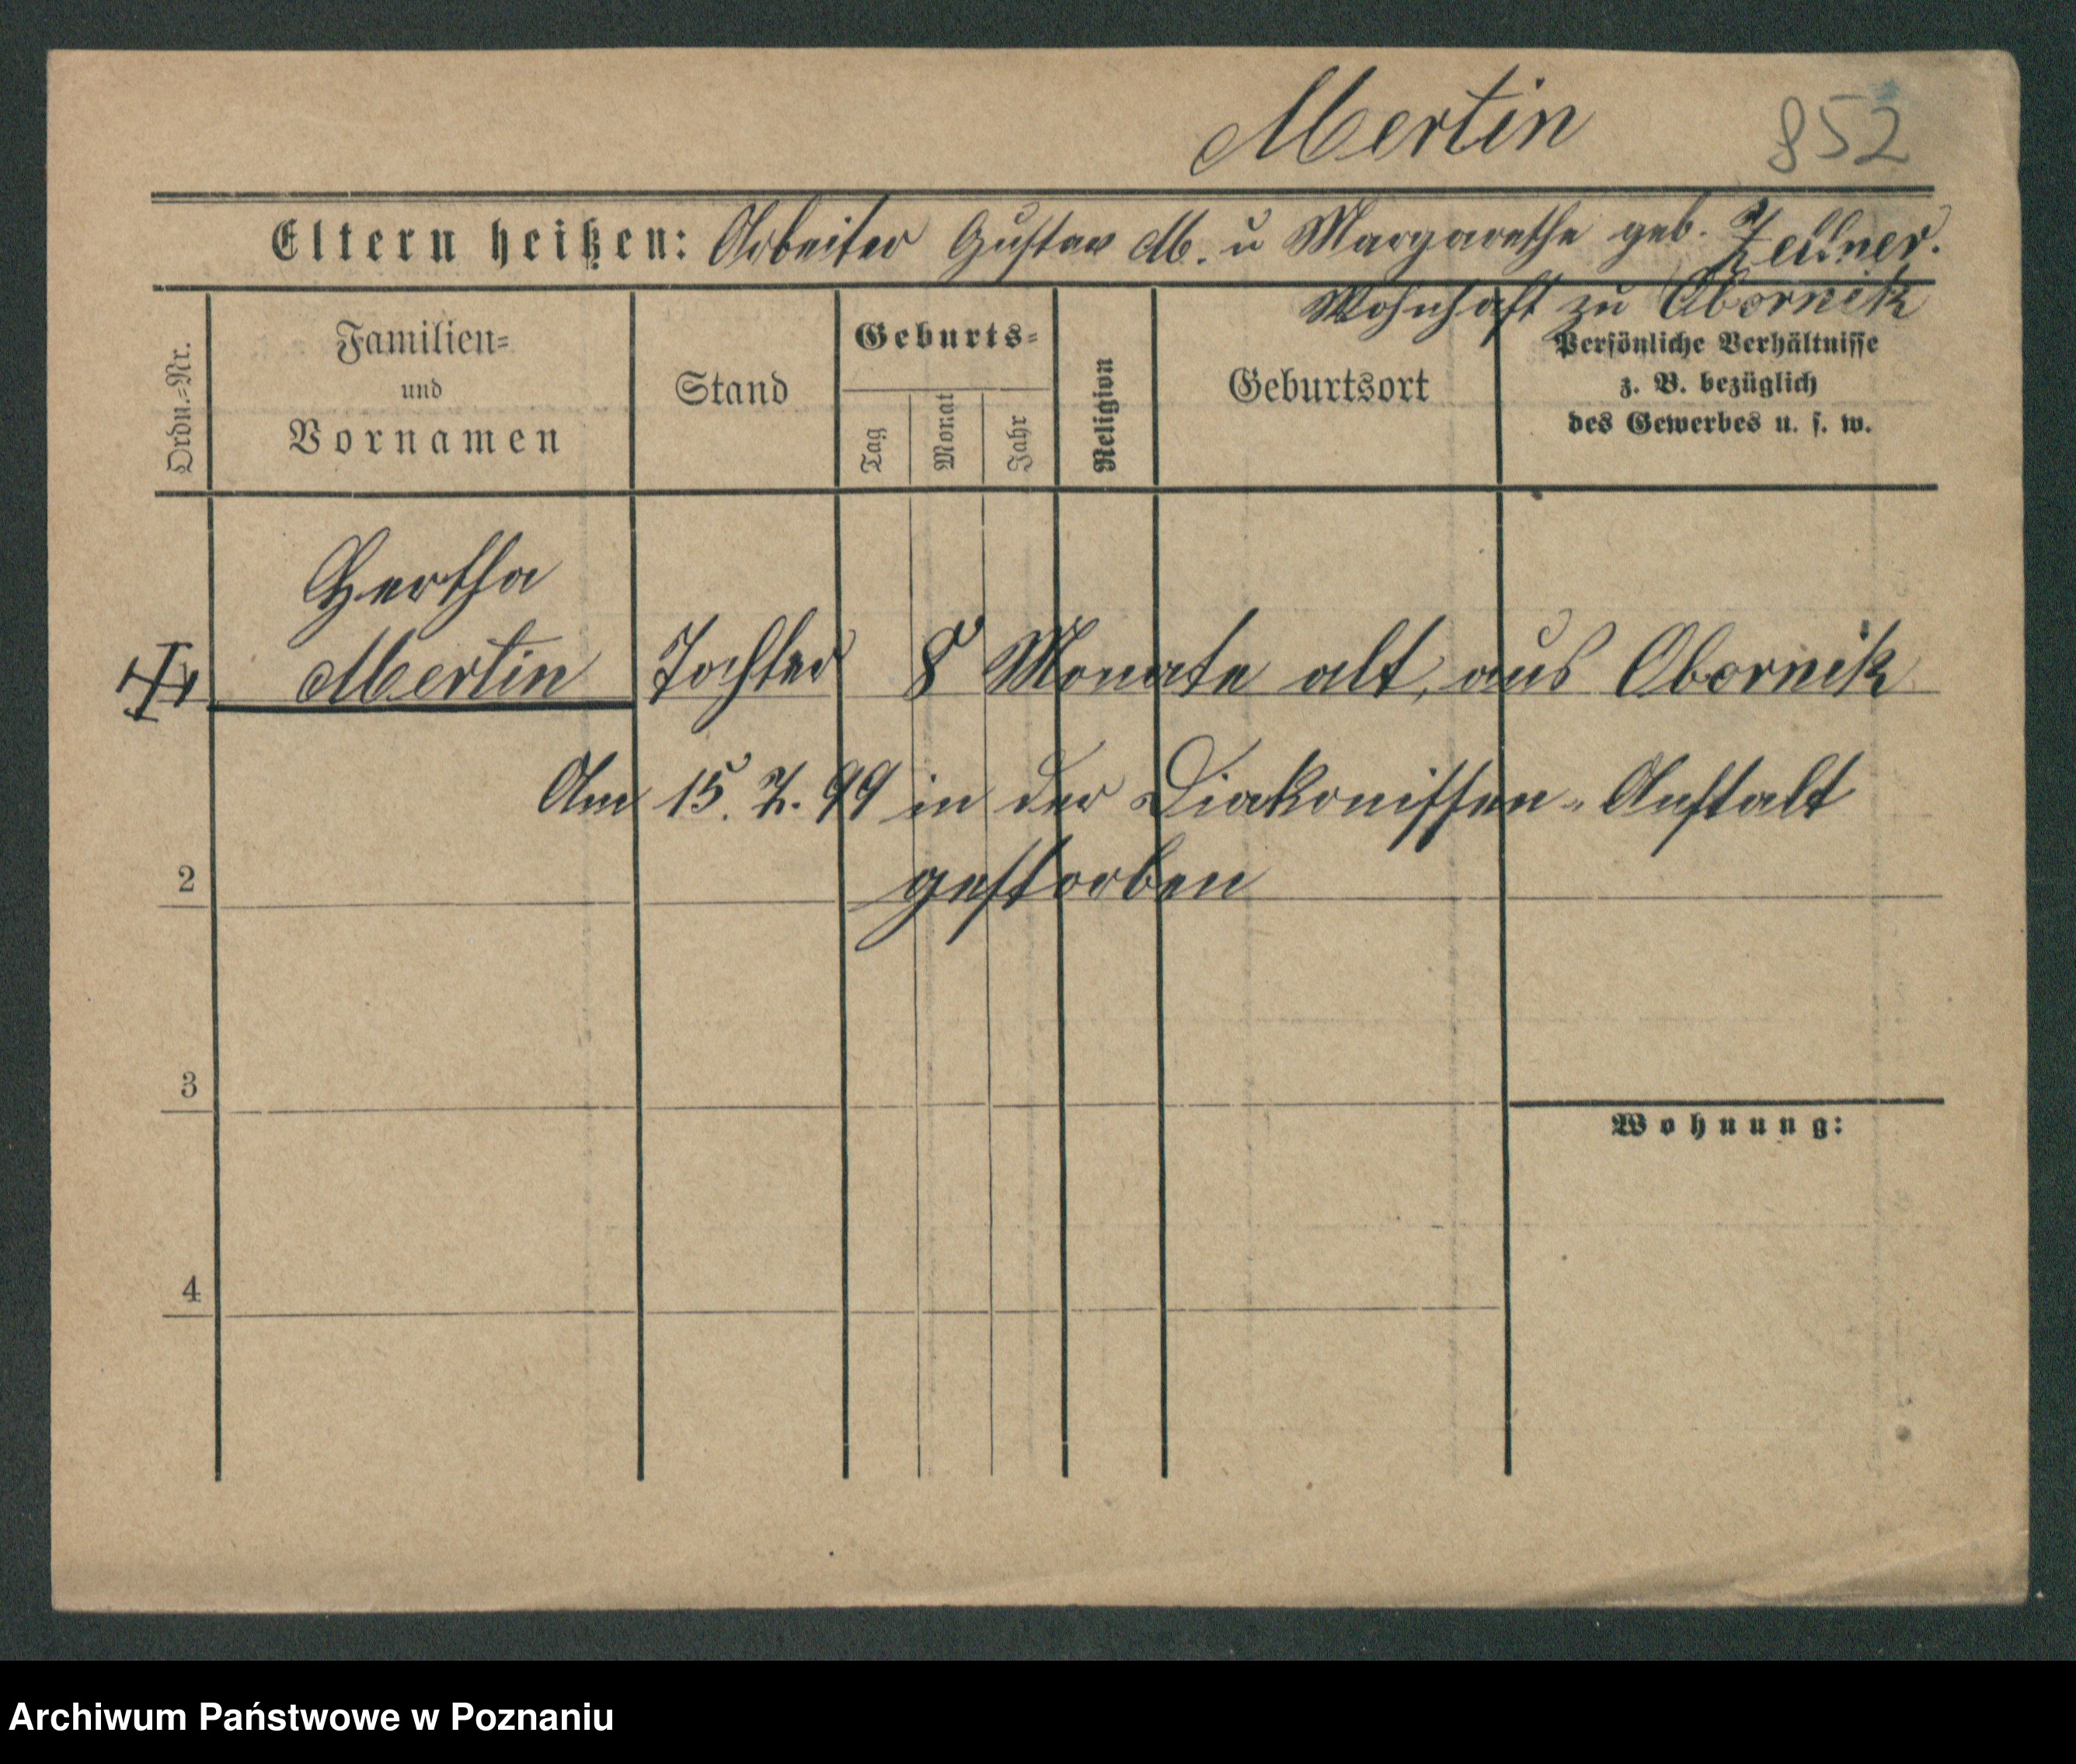 Mertin 852
Eltern heißen: Arbeiter Gustav M. u Margarethe geb. Zellner.
Wohnhaft zu Obornik
Ordn.=Nr.
Familien=
und
Vornamen
Stand
Geburts=
Tag
Monat
Jahr
Religion
Geburtsort
Persönliche Verhältnisse
z. B. bezüglich
des Gewerbes u. s. w.
Hertha
Mertin Tochter 8 Monate alt, aus Obornik
Am 15. 7. 99 in der Diakonissen-Anstalt
2 gestorben
3
Wohnung:
4
Archiwum Państwowe w Poznaniu